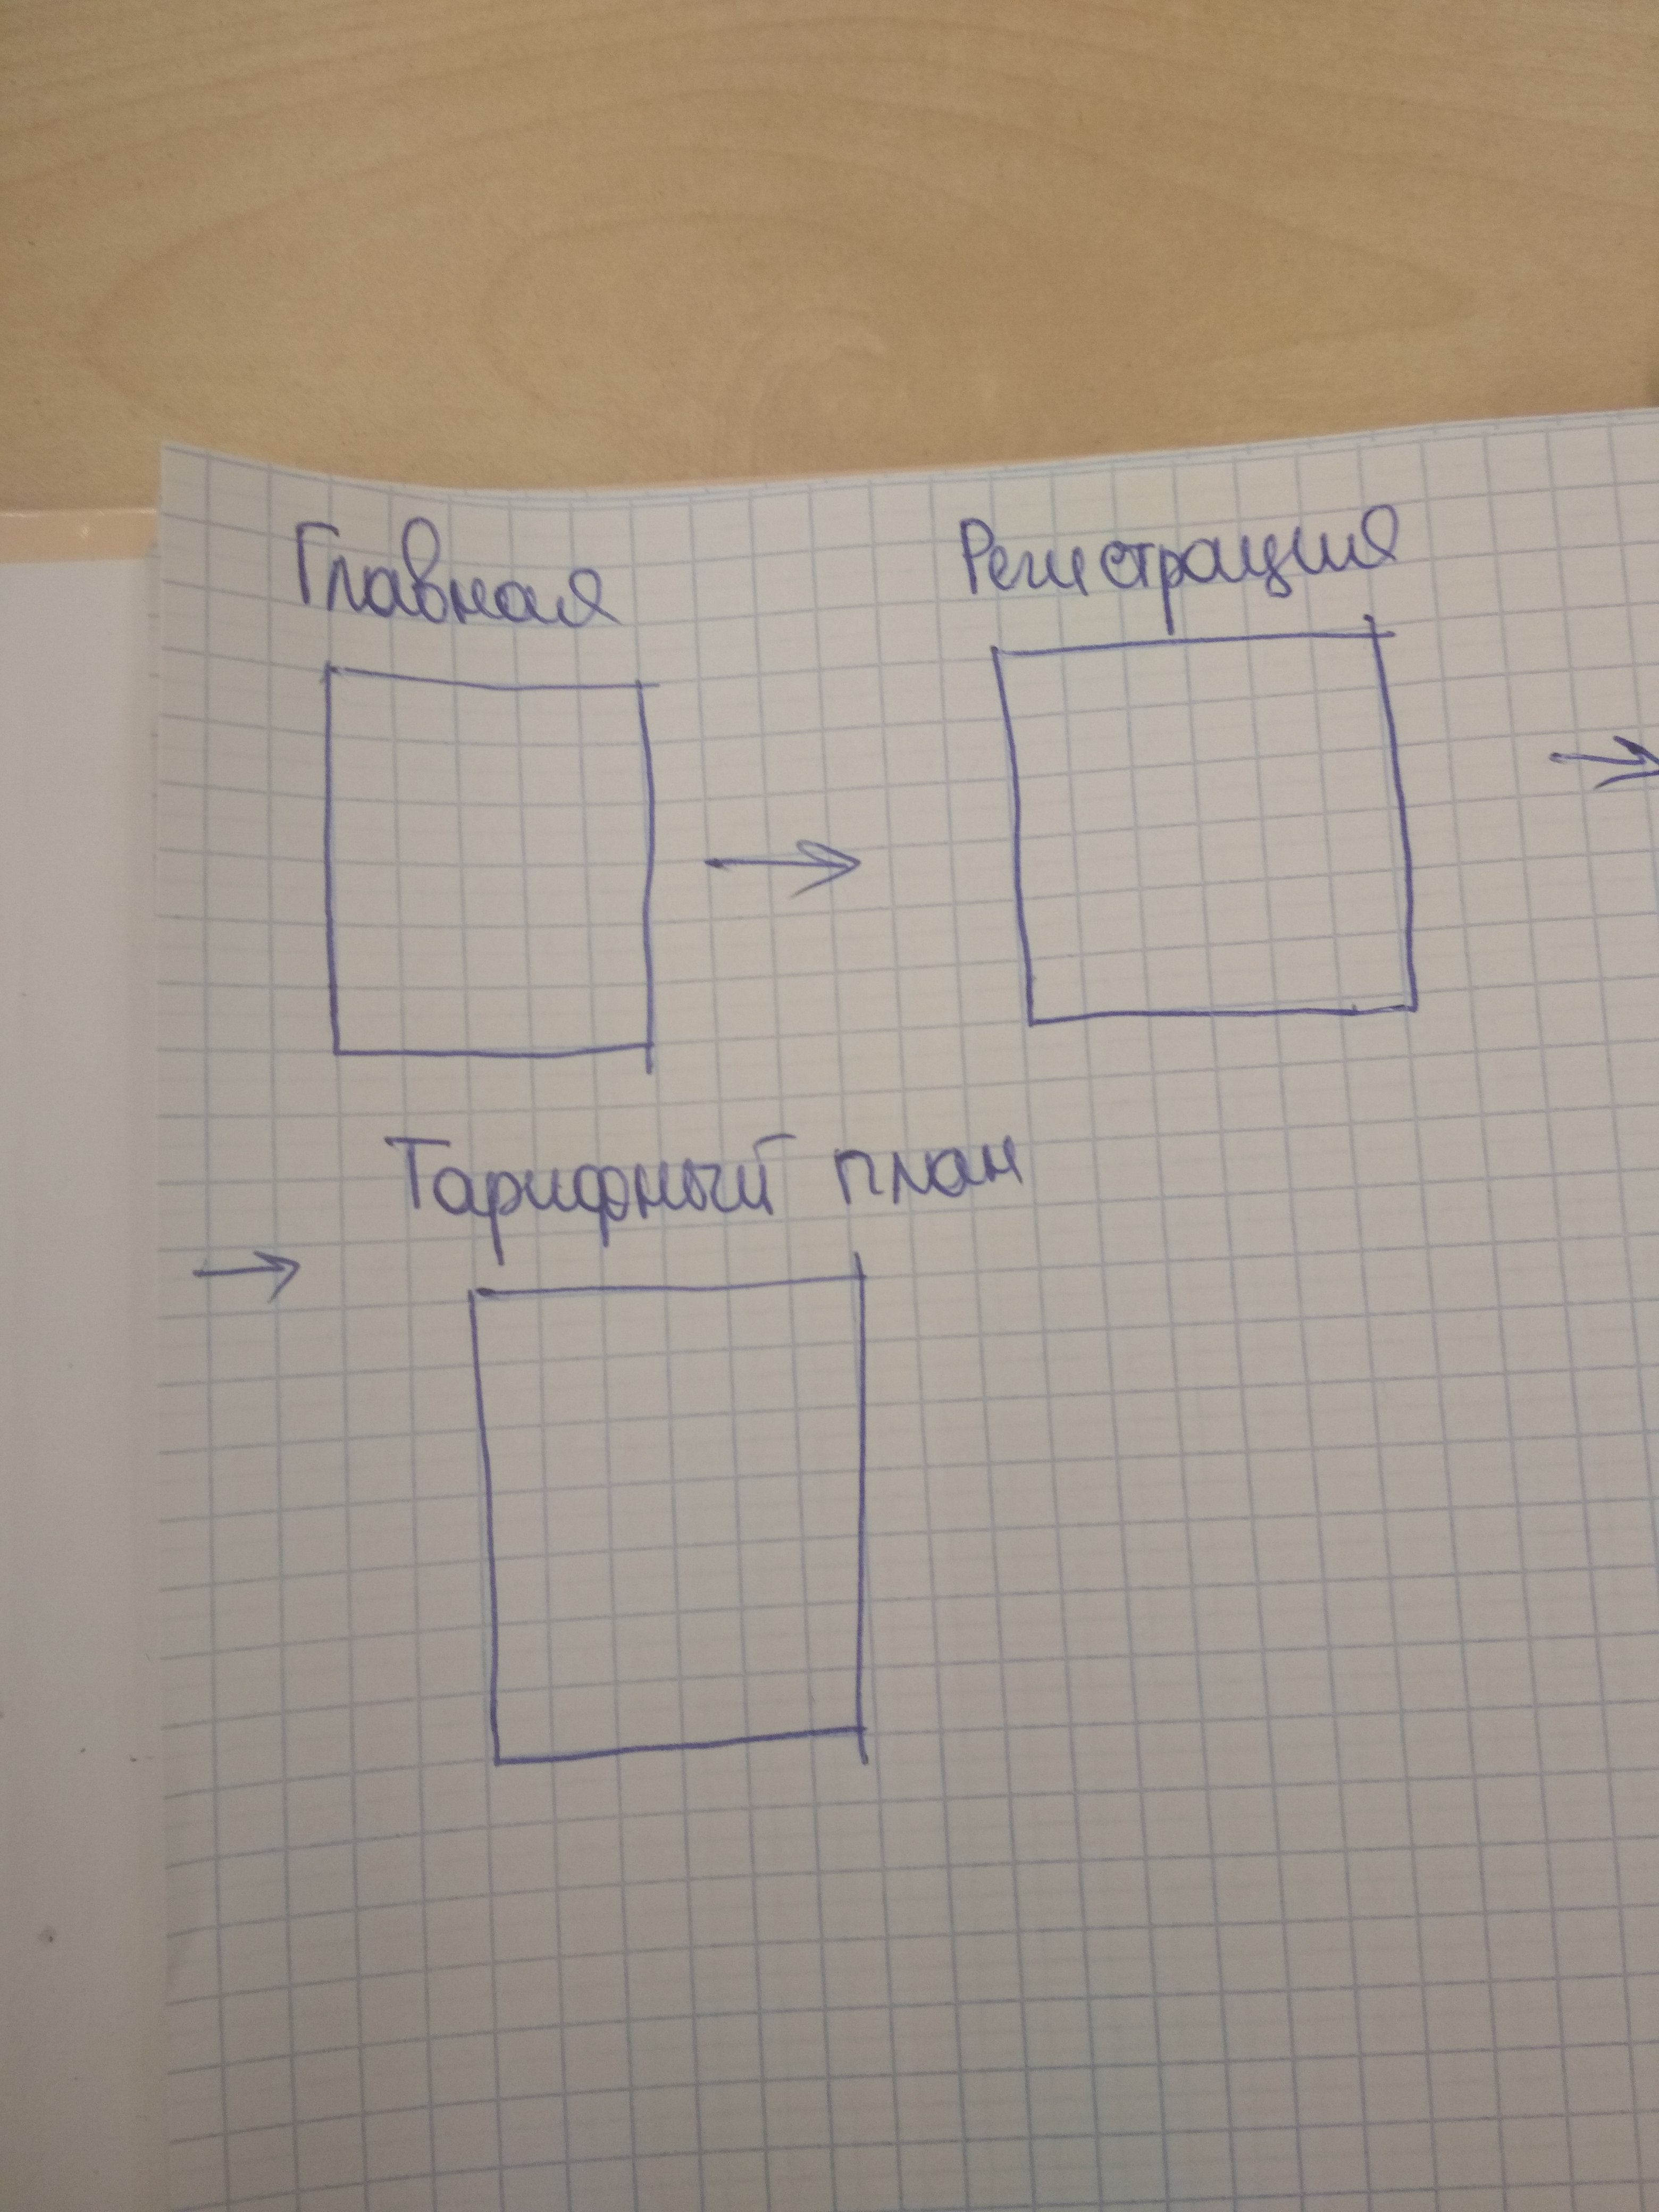 Главная
Регистрация
Тарифный план